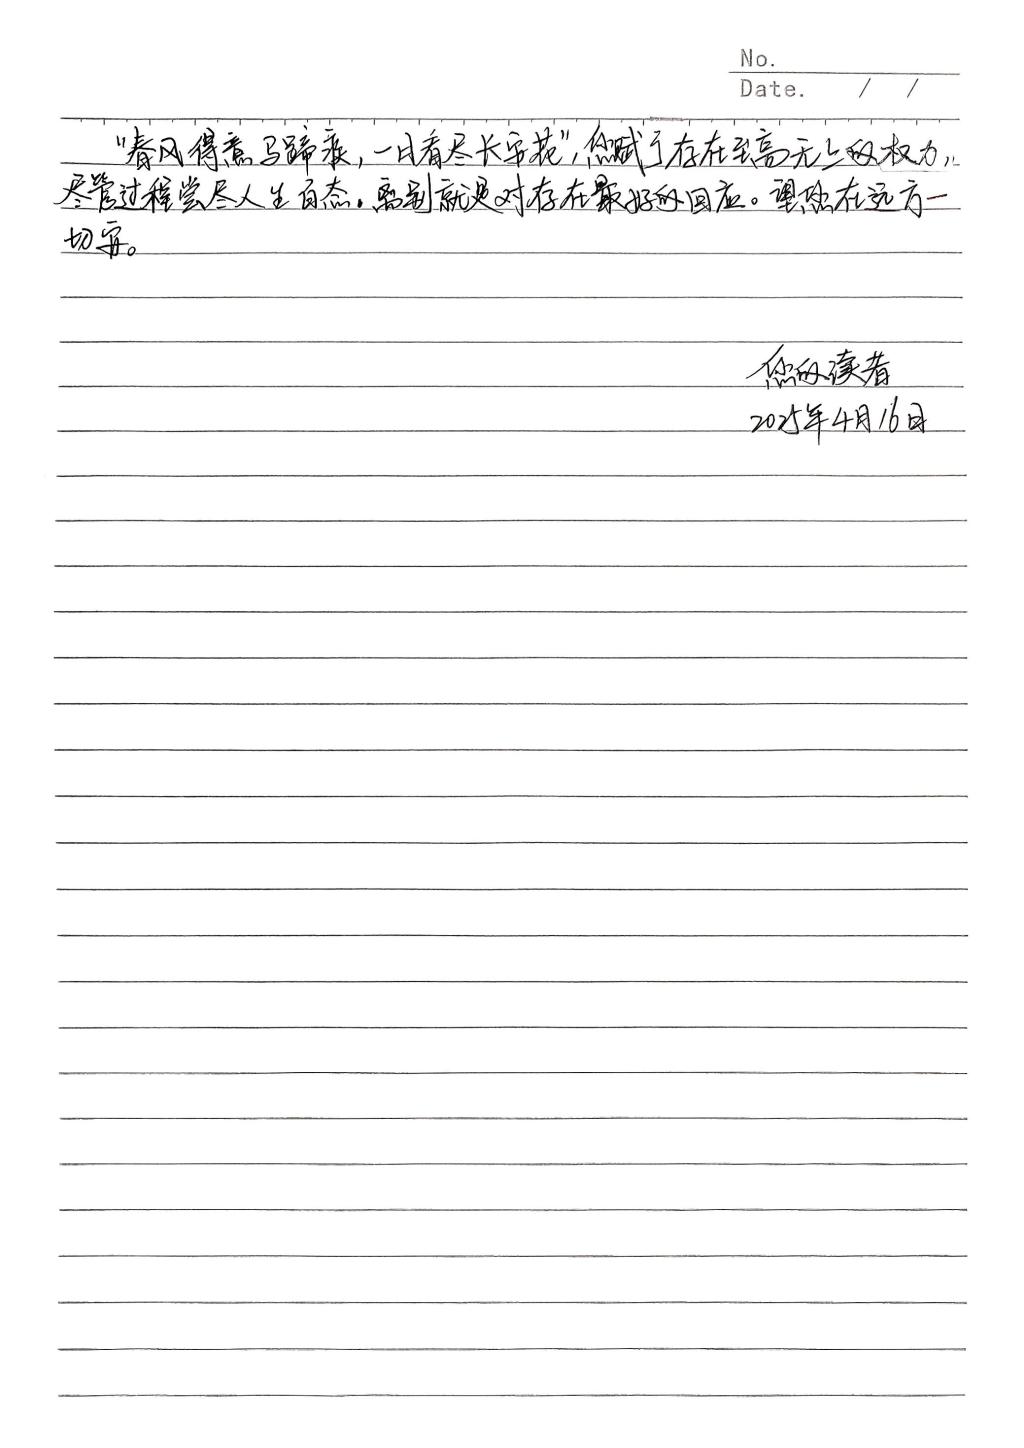 No.
Date. / /
“春风得意马蹄疾，一日看尽长安花”，您赋予存在至高无上的权力，
尽管过程尝尽人生百态。离别就是对存在最好的回应。望您在远方一
切安。
您的读者
2025年4月16日